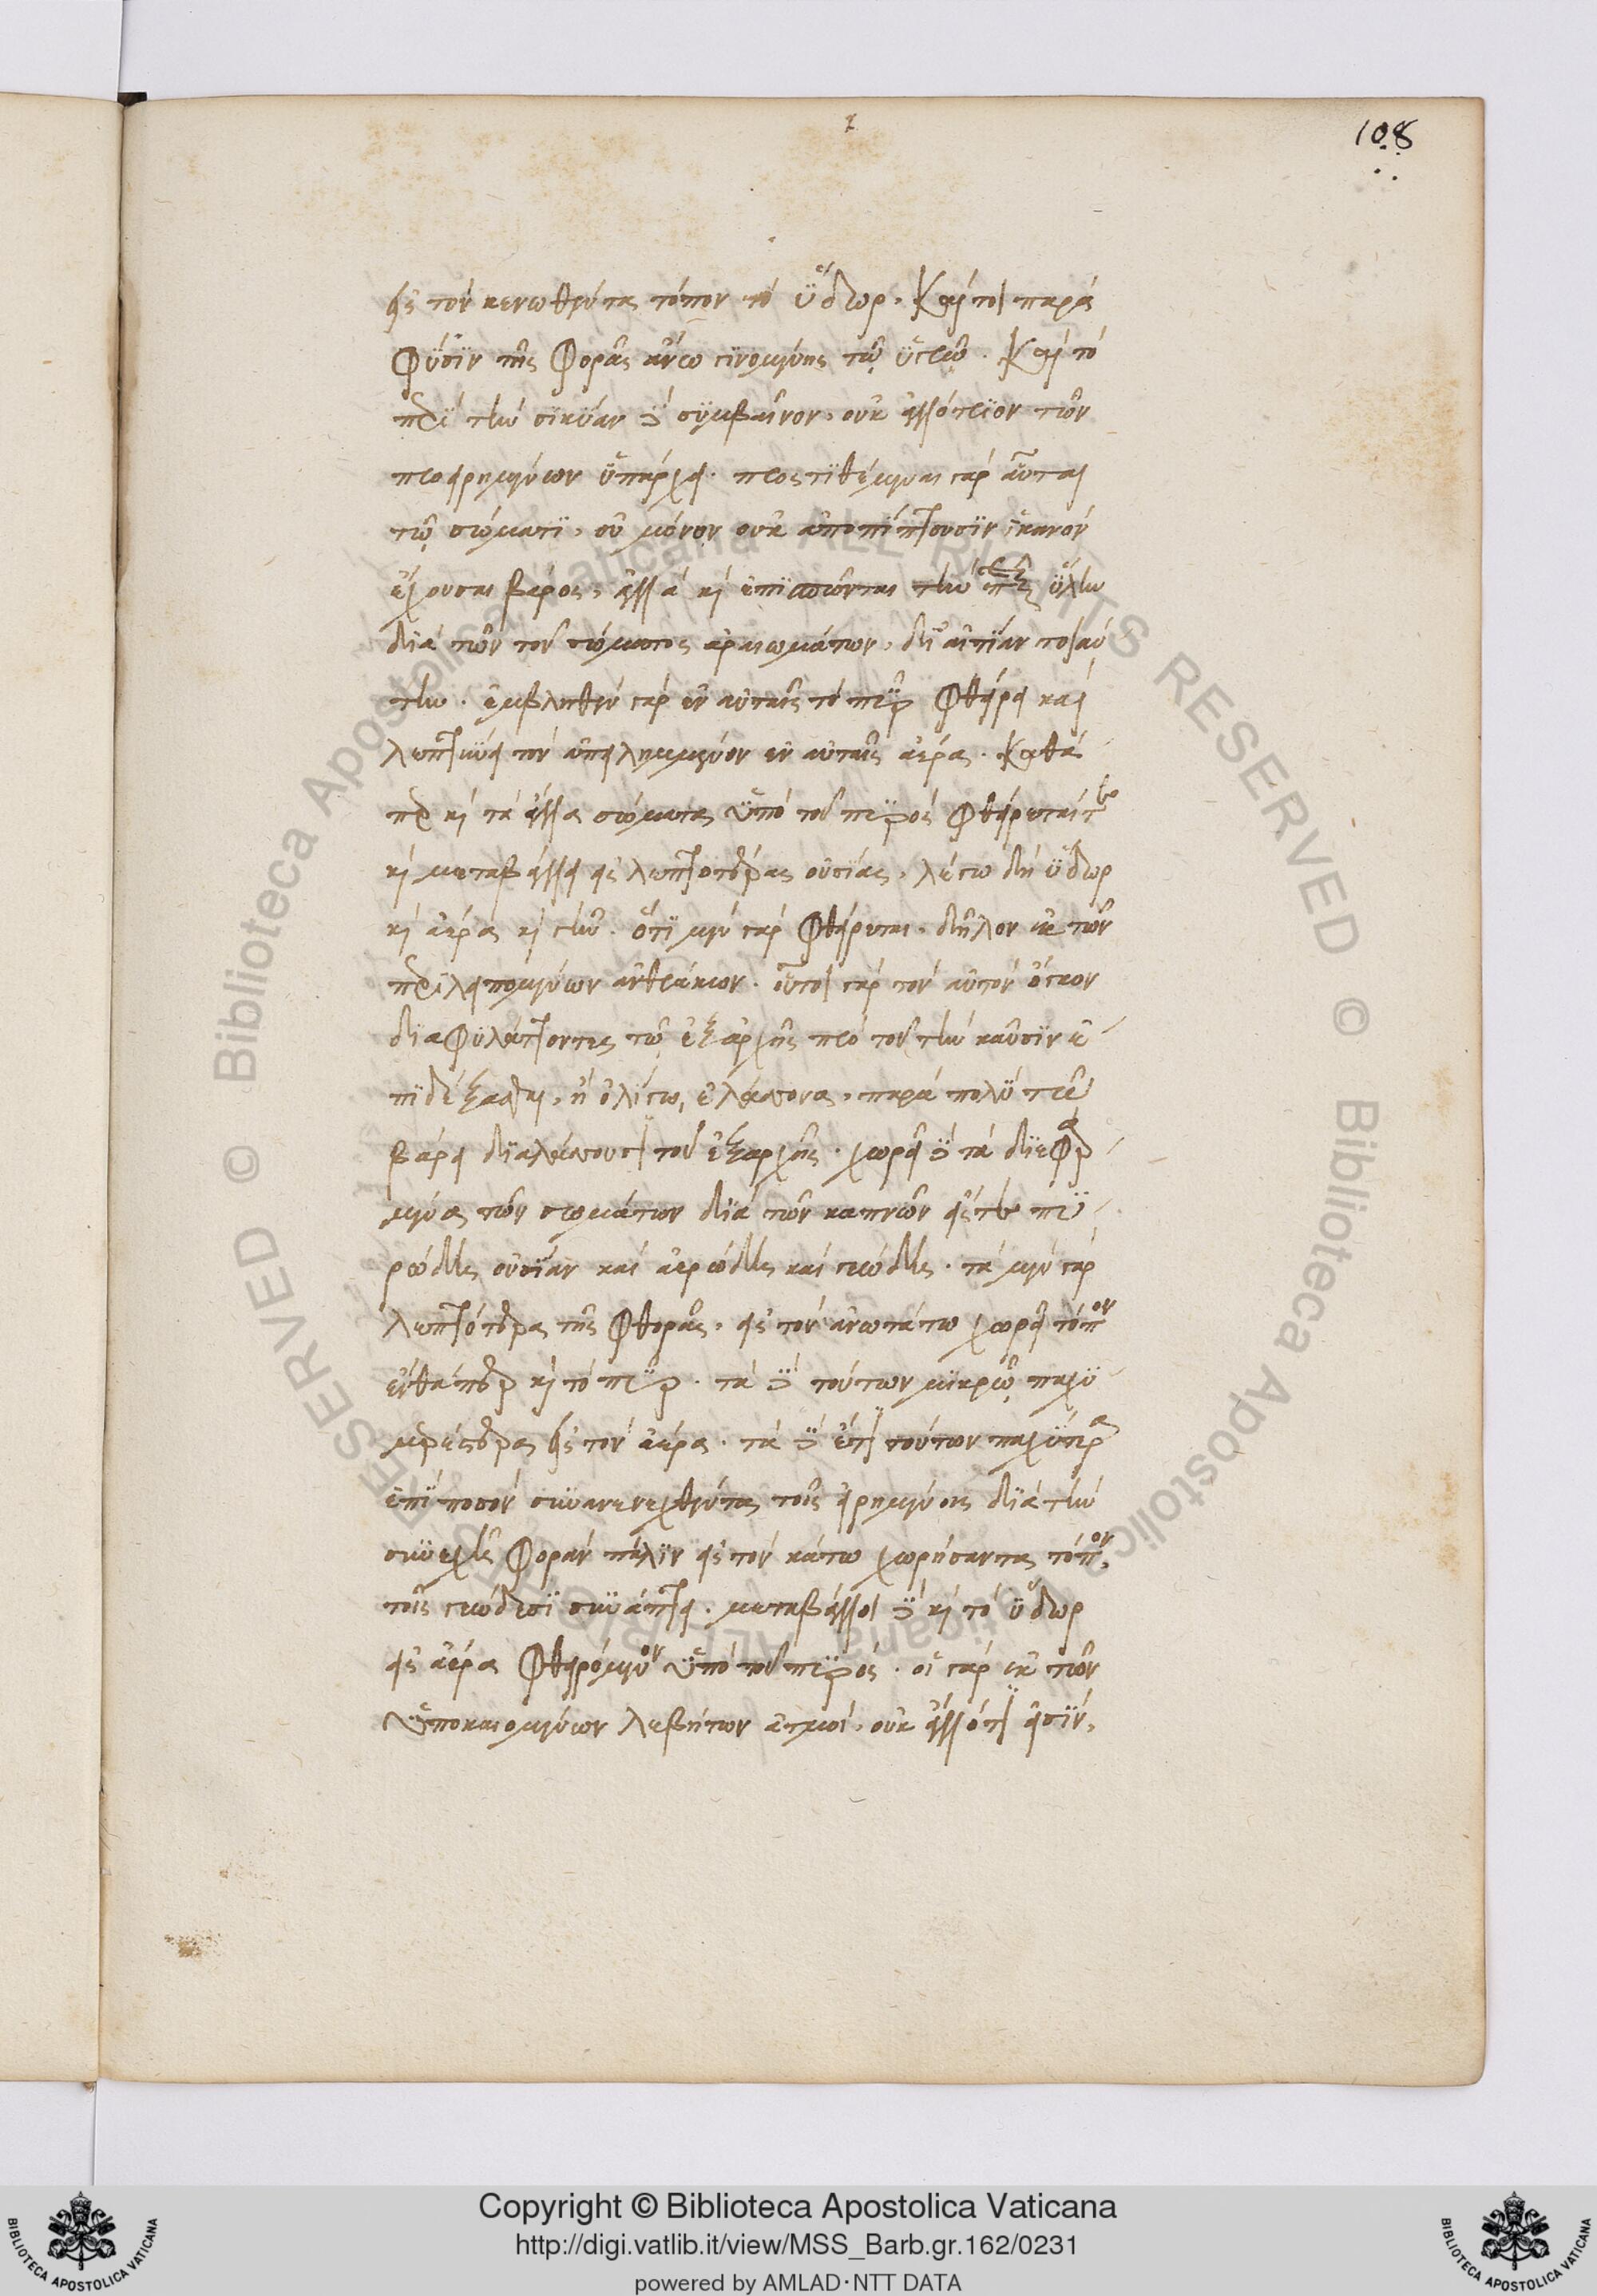 108
εἰς τὸν κενωθέντα τόπον τὸ ὕδωρ. Καίτοι παρὰ
φύσιν τῆς φορᾶς ἄνω γινομένης τῷ ὑγρῷ. Καὶ τὸ
περὶ τὴν σικύαν δὲ συμβαῖνον, οὐκ ἀλλότριον τῶν
προειρημένων ὑπάρχει. προστιθέμεναι γὰρ αὗται
τῷ σώματι, οὐ μόνον οὐκ ἀποπίπτουσιν ἱκανὸν
ἔχουσαι βάρος, ἀλλὰ καὶ ἐπισπῶνται τὴν ὕλην
διὰ τῶν τοῦ σώματος ἀραιωμάτων, δι' αἰτίαν τοιαύ
την. ἐμβληθὲν γὰρ ἐν αὐταῖς τὸ πῦρ φθείρει καὶ
λεπτύνει τὸν ἀπειλημμένον ἐν αὐταῖς ἀέρα. Καθά
περ καὶ τὰ ἄλλα σώματα ὑπὸ τοῦ πυρὸς φθείρεταί τε
καὶ μεταβάλλει εἰς λεπτοτέρας οὐσίας, λέγω δὴ ὕδωρ
καὶ ἀέρα καὶ γῆν. ὅτι μὲν γὰρ φθείρεται, δῆλον ἐκ τῶν
περιλειπομένων ἀνθράκων. οὗτοι γὰρ τὸν αὐτὸν ὄγκον
διαφυλάττοντες τῷ ἐξαρχῆς πρὸ τοῦ τὴν καῦσιν ἐ
πιδέξασθαι, ἢ ὀλίγῳ ἐλάττονα, παρὰ πολὺ τῷ
βάρει διαλάττουσι τοῦ ἐξαρχῆς. χωρεῖ δὲ τὰ διεφθαρ
μένα τῶν σωμάτων διὰ τῶν καπνῶν εἴς τε πυ
ρώδη οὐσίαν καὶ ἀερώδη καὶ γεώδη. τὰ μὲν γὰρ
λεπτότερα τῆς φθορᾶς, εἰς τὸν ἀνωτάτω χωρεῖ τόπον
ἔνθάπερ καὶ τὸ πῦρ. τὰ δὲ τούτων μικρῷ παχυ
μερέστερα εἰς τὸν ἀέρα. τὰ δὲ ἔτι τούτων παχύτερα
ἐπὶ ποσὸν συνανενεχθέντα τοῖς εἰρημένοις διὰ τὴν
συνεχῆ φορὰν πάλιν εἰς τὸν κάτω χωρήσαντα τόπον,
τοῖς γεώδεσι συνάπτει. μεταβάλλει δὲ καὶ τὸ ὕδωρ
εἰς ἀέρα φθειρόμενον ὑπὸ τοῦ πυρός. οἱ γὰρ ἐκ τῶν
ὑποκαιομένων λεβήτων ἀτμοί, οὐκ ἄλλό τι εἰσὶν,
Copyright © Biblioteca Apostolica Vaticana
http://digi.vatlib.it/view/MSS_Barb.gr.162/0231
powered by AMLAD·NTT DATA